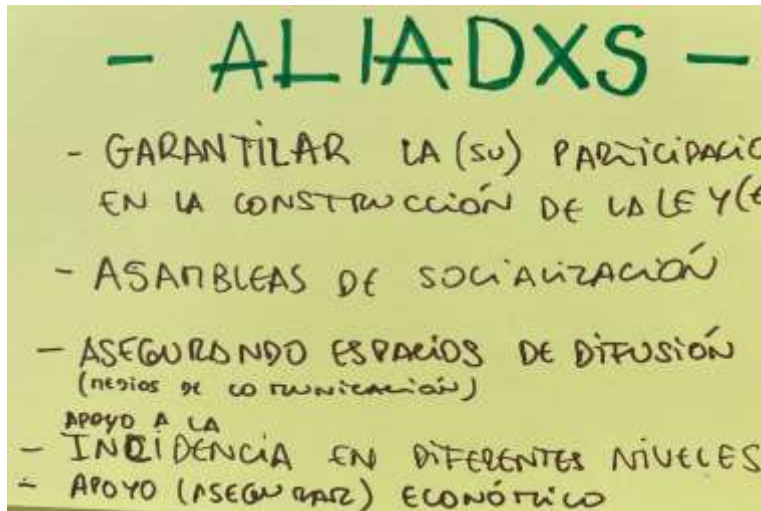 - ALIADXS -
- GARANTIZAR LA (SU) PARTICIPACIO
EN LA CONSTRUCCIÓN DE LA LEY (E
- ASAMBLEAS DE SOCIALIZACIÓN
- ASEGURANDO ESPACIOS DE DIFUSIÓN
(MEDIOS DE COMUNICACIÓN)
APOYO A LA
- INCIDENCIA EN DIFERENTES NIVELES
- APOYO (ASEGURAR) ECONÓMICO